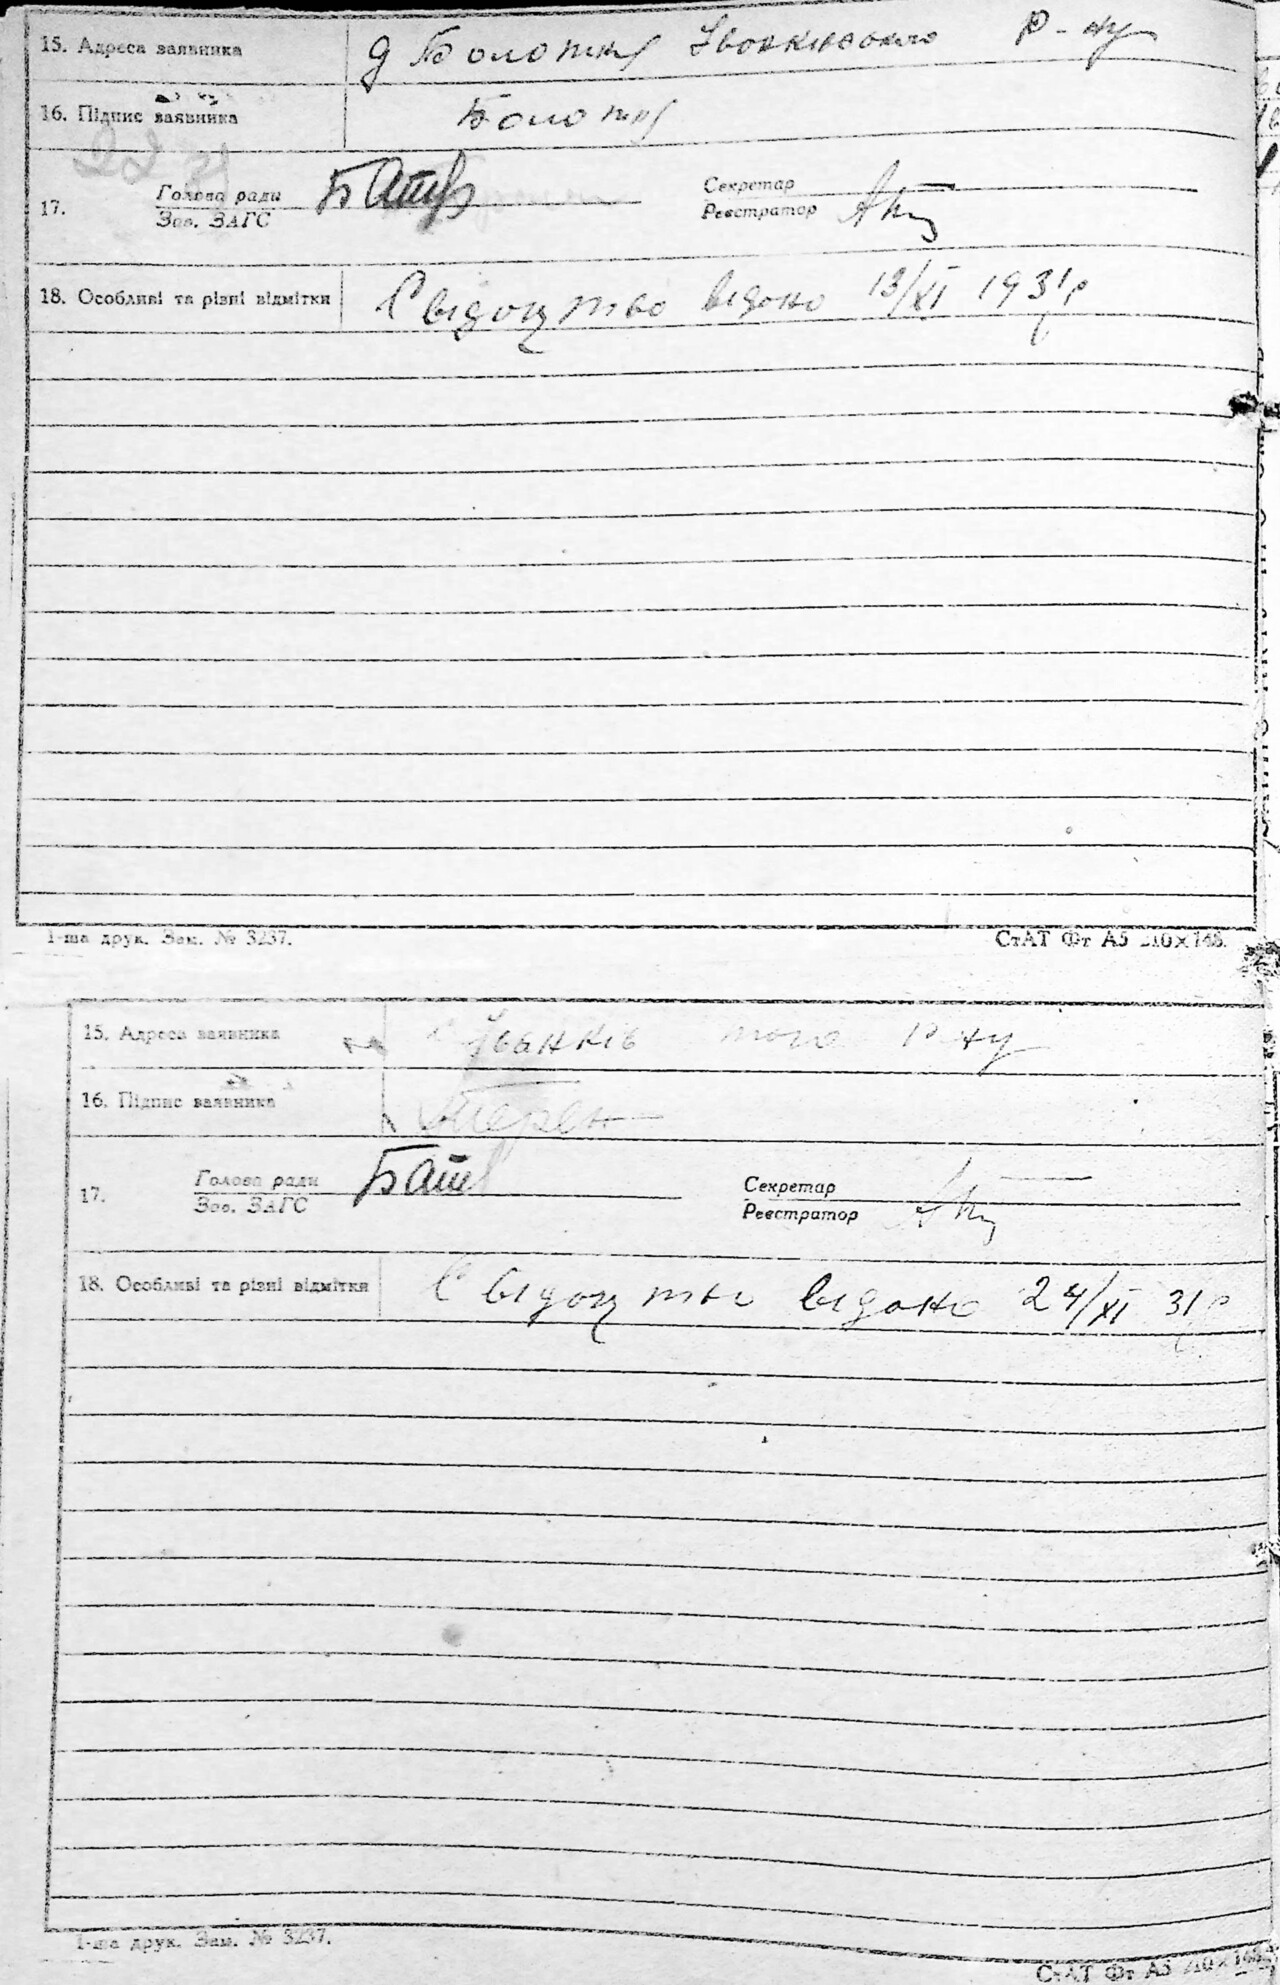 15. Адреса заявника д Болотня Іванківського р-ну
16. Підпис заявника Болотня
17. Голова ради Секретар
Зав. ЗАГС Реєстратор
18. Особливі та різні відмітки Свідоцтво відано 13/XI 1931р
1-ша друк. Зам. № 3237. СтАТ Фт А5 210×148.
15. Адреса заявника Іванків того р-ну
16. Підпис заявника
17. Голова ради Секретар
Зав. ЗАГС Реєстратор
18. Особливі та різні відмітки Свідоцтво відано 24/XI 31р
1-ша друк. Зам. № 3237.
СтАТ Фт А5 210×148.